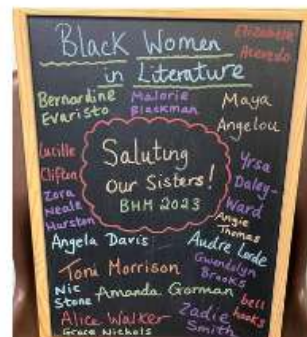 Black Women
in Literature
Elizabeth
Acevedo
Bernardine
Evaristo
Malorie
Blackman
Maya
Angelou
Lucille
Clifton
Saluting
Our Sisters!
BHM 2023
Yrsa
Daley-
Ward
Zora
Neale
Hurston
Angie
Thomas
Angela Davis
Audre Lorde
Toni Morrison
Gwendolyn
Brooks
Nic
Stone
Amanda Gorman
bell
hooks
Alice Walker
Zadie
Smith
Grace Nichols